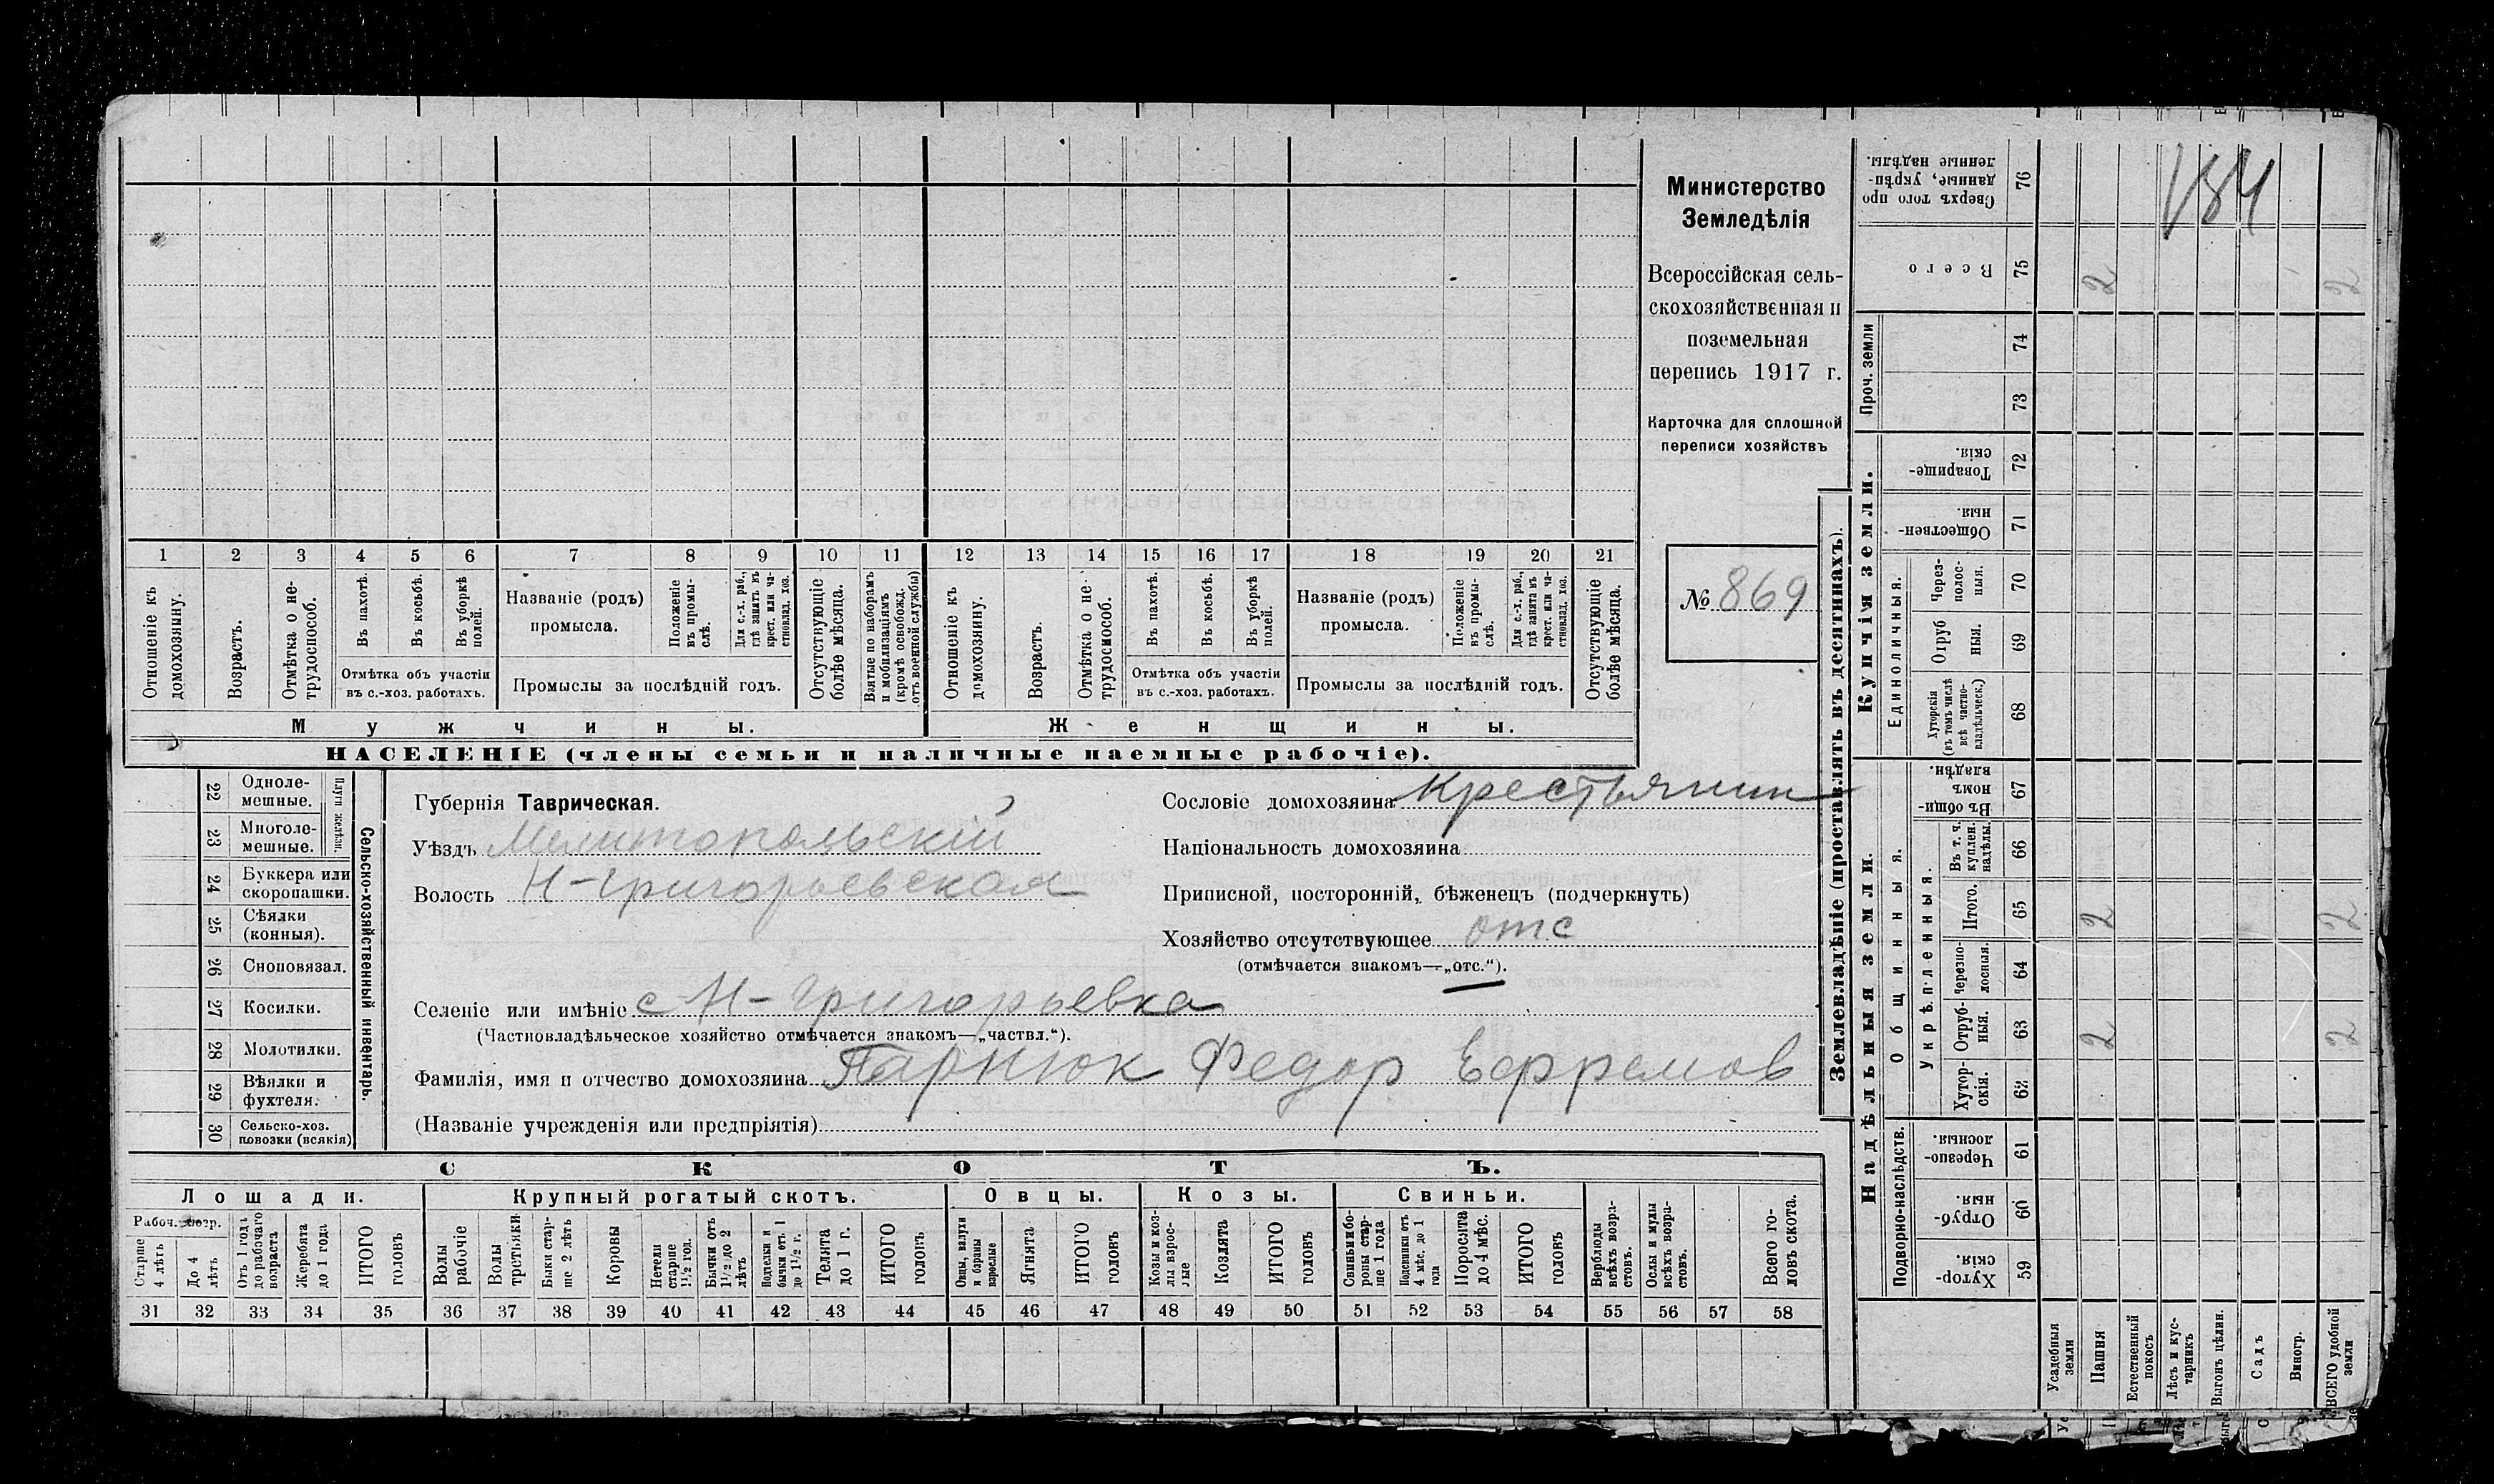 Министерство
Земледѣлія
Всероссійская сель-
скохозяйственная и
поземельная
перепись 1917 г.
Карточка для сплошной
переписи хозяйствъ
№ 869
1 2 3 4 5 6 7 8 9 10 11 12 13 14 15 16 17 18 19 20 21
Отношеніе къ домохозяину.
Возрастъ.
Отмѣтка о не-трудоспособ.
Въ пахотѣ.
Въ косьбѣ.
Въ уборкѣ полей.
Отмѣтка объ участіи
въ с.-хоз. работахъ.
Названіе (родъ)
промысла.
Положеніе въ промы-слѣ.
Для с.-х. раб., гдѣ занятъ въ крест. или ча-стновлад. хоз.
Промыслы за послѣдній годъ.
Отсутствующіе болѣе мѣсяца.
Взятые по наборамъ и мобилизаціямъ (кромѣ освобожд. отъ военной службы)
Отношеніе къ домохозяину.
Возрастъ.
Отмѣтка о не-трудоспособ.
Въ пахотѣ.
Въ косьбѣ.
Въ уборкѣ полей.
Отмѣтка объ участіи
въ с.-хоз. работахъ.
Названіе (родъ)
промысла.
Положеніе въ промы-слѣ.
Для с.-х. раб., гдѣ занята въ крест. или ча-стновлад. хоз.
Промыслы за послѣдній годъ.
Отсутствующіе болѣе мѣсяца.
Мужчины.
Женщины.
НАСЕЛЕНІЕ (члены семьи и наличные наемные рабочіе).
Сельско-хозяйственный инвентарь.
Плуги желѣзн.
22 Одноле-мешные.
23 Многоле-мешные.
24 Буккера или скоропашки.
25 Сѣялки (конныя).
26 Сноповязал.
27 Косилки.
28 Молотилки.
29 Вѣялки и фухтеля.
30 Сельско-хоз. повозки (всякія)
Губернія Таврическая.
Уѣздъ Мелитопольскій
Волость Н-Григорьевская
Сословіе домохозяина Крестьянин
Національность домохозяина
Приписной, посторонній, бѣженецъ (подчеркнуть)
Хозяйство отсутствующее отс
(отмѣчается знакомъ—„отс.“).
Селеніе или имѣніе с Н-Григорьевка
(Частновладѣльческое хозяйство отмѣчается знакомъ—„частвл.“).
Фамилія, имя и отчество домохозяина Парнюк Федор Ефремов
(Названіе учрежденія или предпріятія)
СКОТЪ.
Лошади.
Крупный рогатый скотъ.
Овцы.
Козы.
Свиньи.
Рабоч. возр.
Старше 4 лѣтъ
До 4 лѣтъ
Отъ 1 года до рабочаго возраста
Жеребята до 1 года
ИТОГО головъ
Волы рабочіе
Волы третьяки
Быки стар-ше 2 лѣтъ
Коровы
Нетели старше 1½ год.
Бычки отъ 1½ до 2 лѣтъ
Подтелки и бычки отъ 1 до 1½ г.
Телята до 1 г.
ИТОГО головъ
Овцы, валухи и бараны взрослые
Ягнята
ИТОГО головъ
Козы и коз-лы взрос-лые
Козлята
ИТОГО головъ
Свиньи и бо-ровы стар-ше 1 года
Подсвинки отъ 4 мѣс. до 1 года
Поросята до 4 мѣс.
ИТОГО головъ
Верблюды всѣхъ возра-стовъ.
Ослы и мулы всѣхъ возра-стовъ.
Всего го-ловъ скота.
31 32 33 34 35 36 37 38 39 40 41 42 43 44 45 46 47 48 49 50 51 52 53 54 55 56 57 58
Землевладѣніе (проставлять въ десятинахъ).
184
Сверхъ того про-данные, укрѣп-ленные надѣлы. 76
Всего 75 2 2
Проч. земли
74
73
Купчія земли.
Товарище-скія. 72
Обществен-ныя. 71
Единоличныя.
Через-полос-ныя. 70
Отруб-ныя. 69
Хуторскія (въ томъ числѣ всѣ частно-владѣльческ.) 68
Надѣльныя земли.
Общинныя.
Въ общи-номъ владѣн. 67
Укрѣпленныя.
Въ т. ч. куплен. надѣлы. 66
Итого. 65 2 2
Черезпо-лосныя. 64
Отруб-ныя. 63 2 2
Хутор-скія. 62
Подворно-наслѣдств.
Черезпо-лосныя. 61
Отруб-ныя. 60
Хутор-скія. 59
Усадебныя земли
Пашня
Естественный покосъ
Лѣсъ и кус-тарникъ
Выгонъ цѣлин.
Садъ
Виногр.
ВСЕГО удобной земли